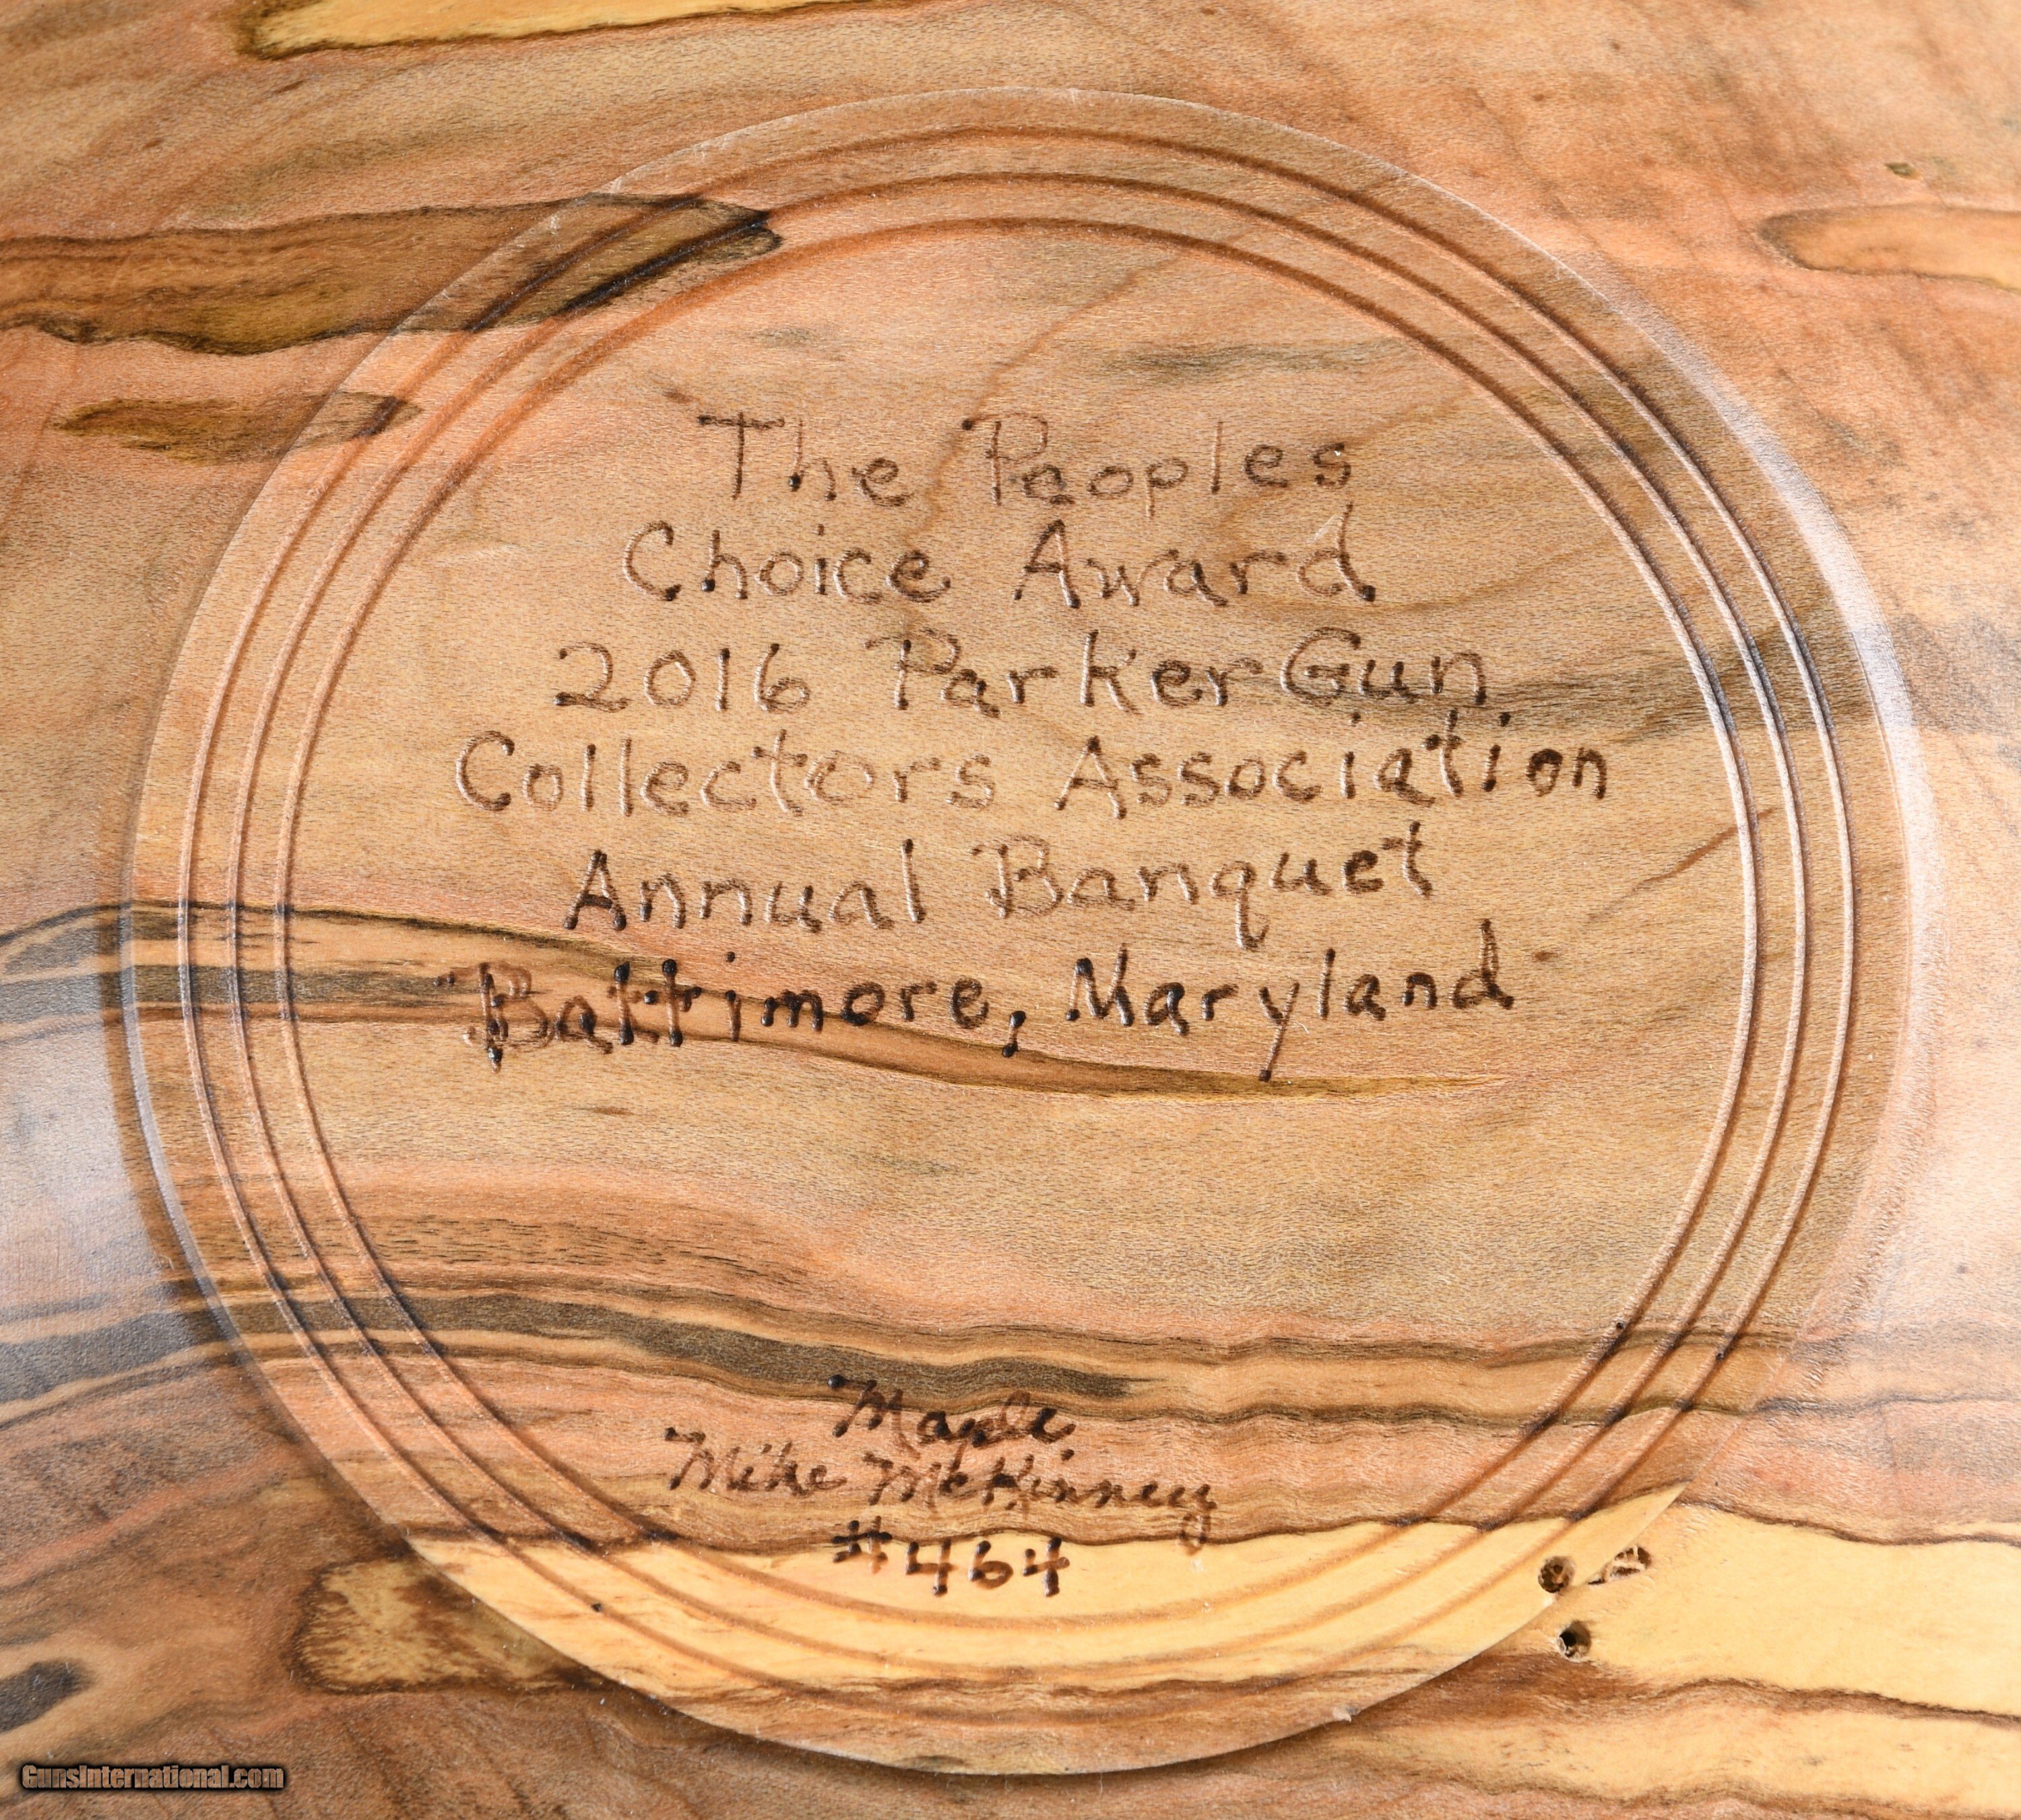 The Peoples
Choice Award
2016 Parker Gun
Collectors Association
Annual Banquet
Baltimore, Maryland
Maple
Mike McKinney
#464
GunsInternational.com